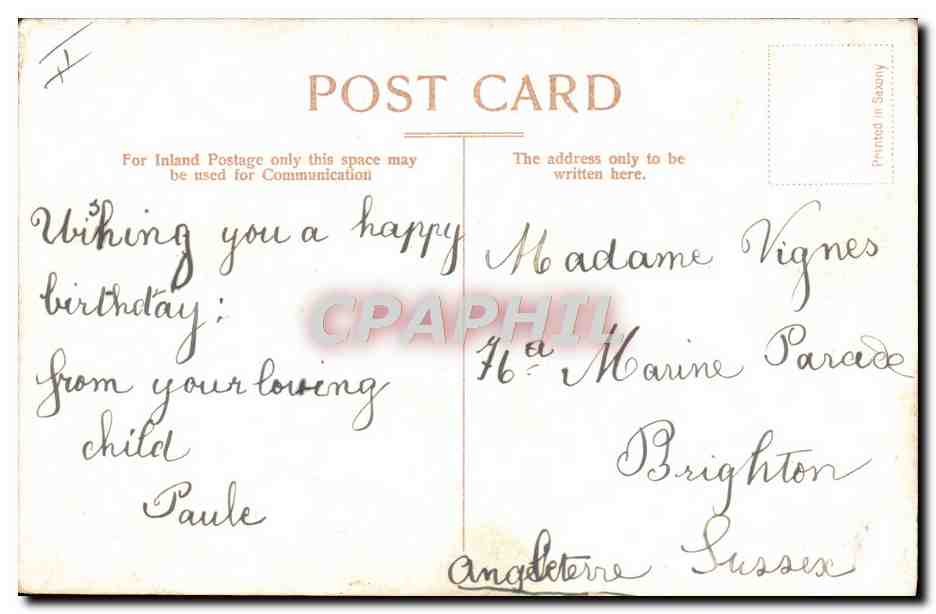 POST CARD
For Inland Postage only this space may
be used for Communication
The address only to be
written here.
Printed in Saxony
Wishing you a happy
birthday:
from your loving
child
Paule
Madame Vignes
76a Marine Parade
Brighton
Sussex
Angleterre
CPAPHIL